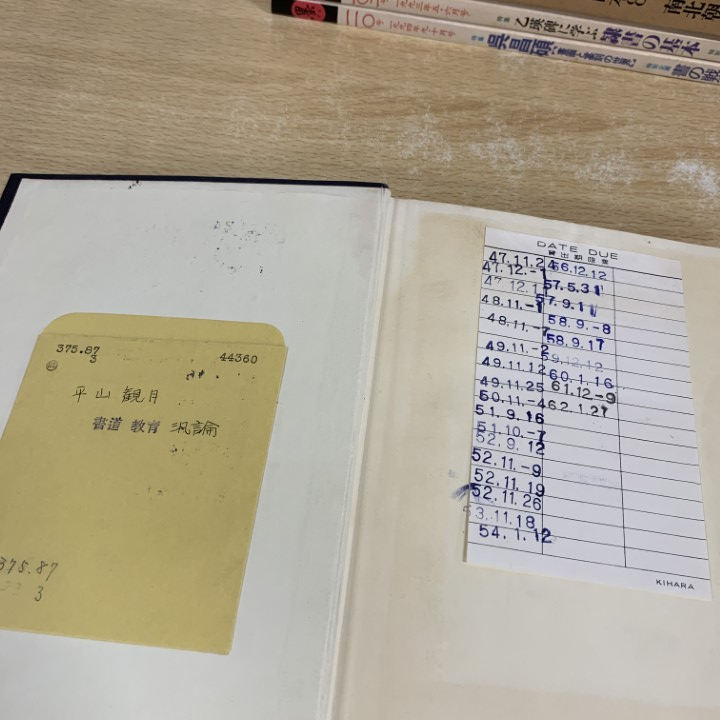 一〇号 一九九四年九・十月号 特集 呉昌碩
特集 乙瑛碑に学ぶ 隷書の基本
南北朝
375.87
3
44360
平山 観月
書道 教育 汎論
375.87
3
DATE DUE
貸出期限票
47.11.24
56.12.12
47.12.-1
57.5.31
47.12.11
57.9.11
48.11.-1
58.9.-8
48.11.-7
58.9.17
49.11.-2
59.12.12
49.11.12
60.1.16
49.11.25
61.12.-9
50.11.-4
62.1.21
51.9.16
51.10.-7
52.9.12
52.11.-9
52.11.19
52.11.26
53.11.18
54.1.12
KIHARA